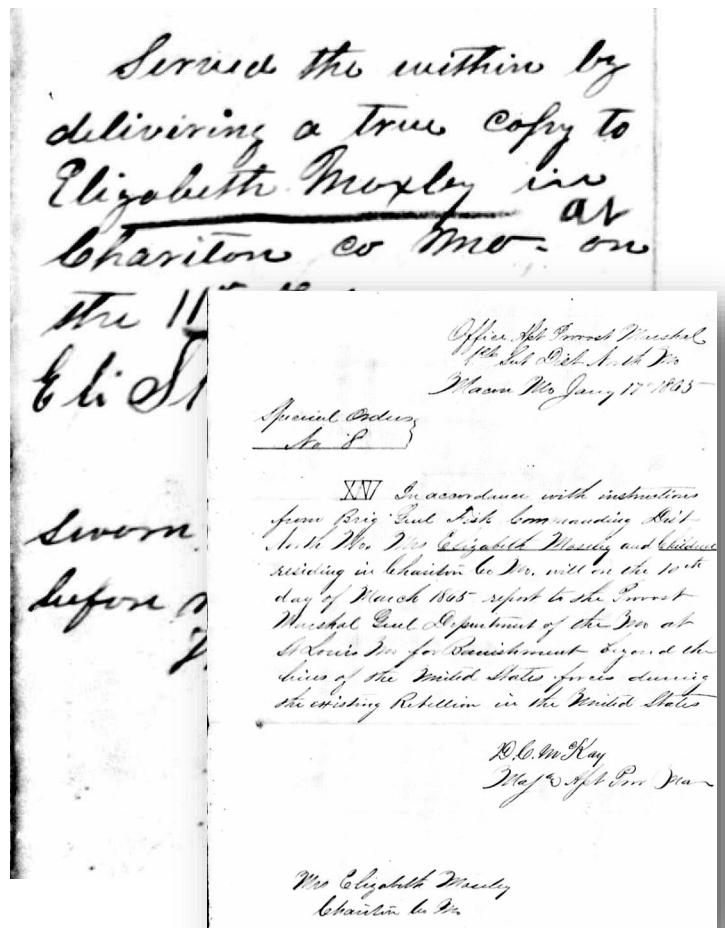 Served the within by
delivering a true copy to
Elizabeth Moxley in
at
Chariton co Mo - on
the 11th
Eli
Sworn
before
Office Asst Provost Marshal
1st Sub Dist North Mo
Macon Mo Jany 17th 1865
Special Orders
No 8
XV In accordance with instructions
from Brig Genl Fisk Commanding Dist
North Mo Mrs Elizabeth Moseley and Children
residing in Chariton Co Mo. will on the 10th
day of March 1865 report to the Provost
Marshal Genl Department of the Mo at
St Louis Mo for Banishment beyond the
lines of the United States forces during
the existing Rebellion in the United States
D. C. McKay
Maj & Asst Prov Mar
Mrs Elizabeth Moseley
Chariton Co Mo